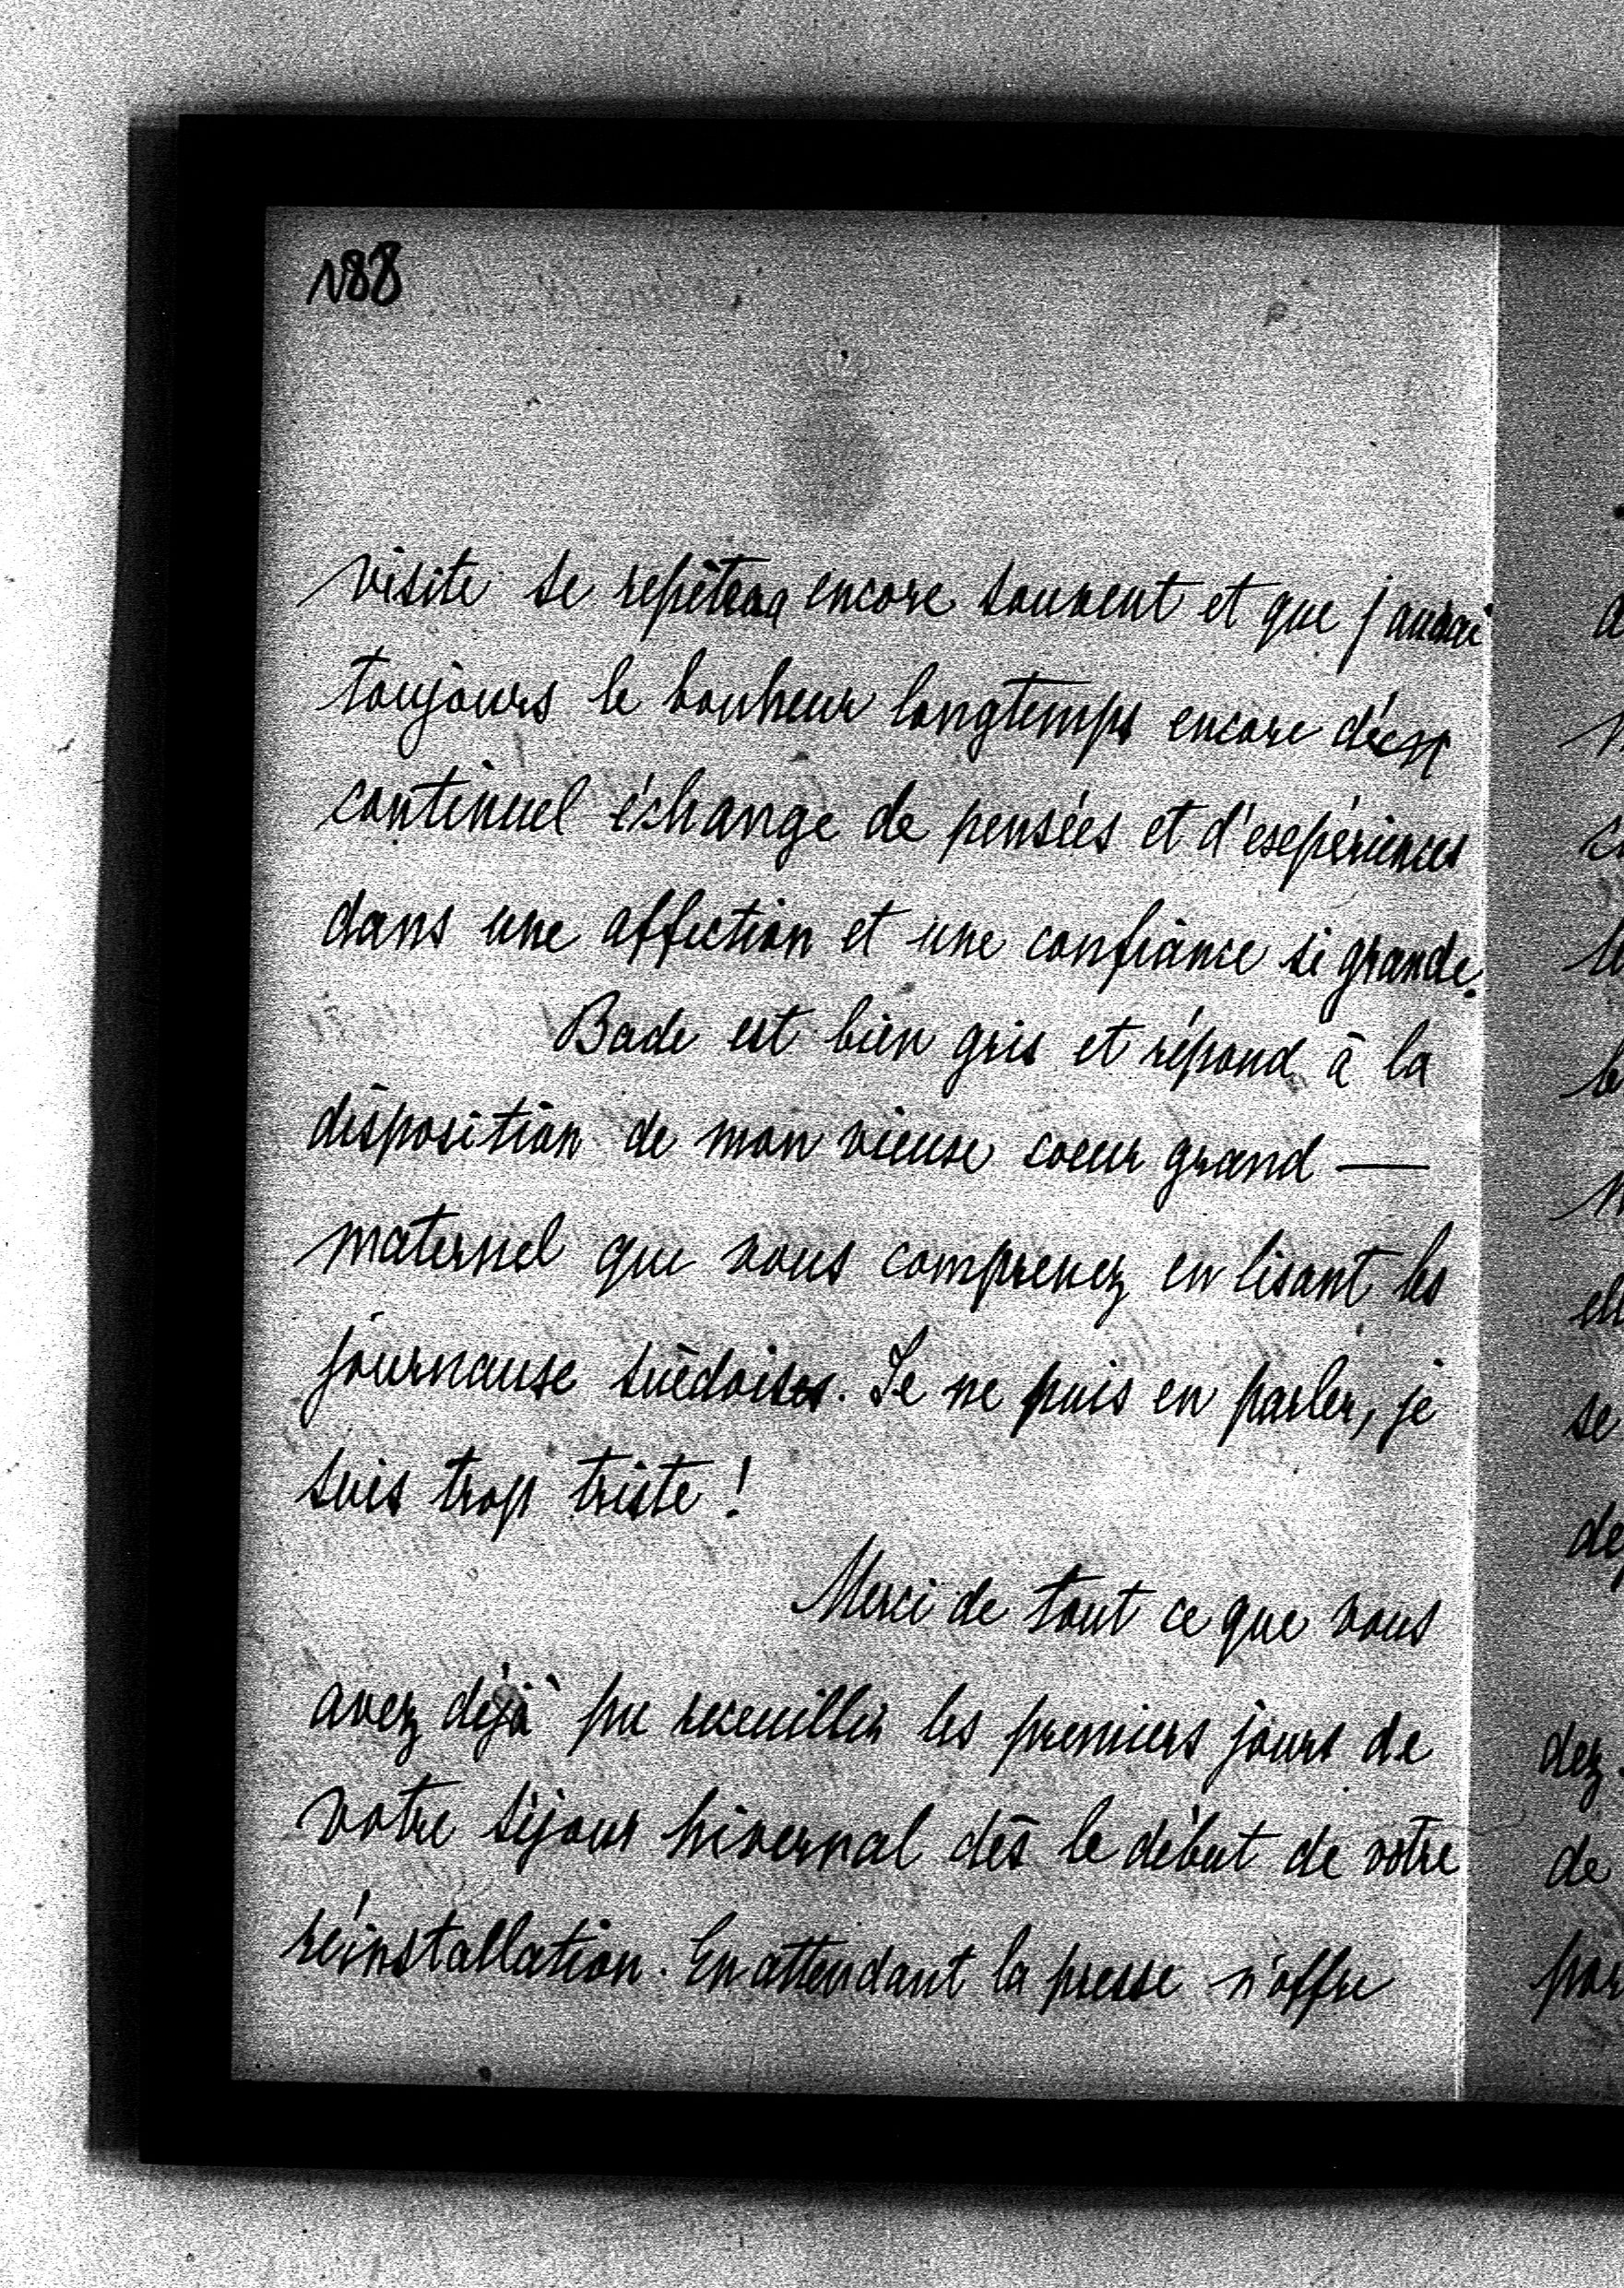 N88
visite se repètera encore souvent et que j'aurai
toujours le bonheur longtemps encore d'un
continuel échange de pensées et d'expériences
dans une affection et une confiance si grande.
Bade est bien gris et répond à la
disposition de mon vieux coeur grand —
maternel que vous comprenez en lisant les
journaux suèdois. Je ne puis en parler, je
suis trop triste !
Merci de tout ce que vous
avez déjà pu recueillir les premiers jours de
votre séjour hivernal dès le début de votre
réinstallation. En attendant la presse n'offre